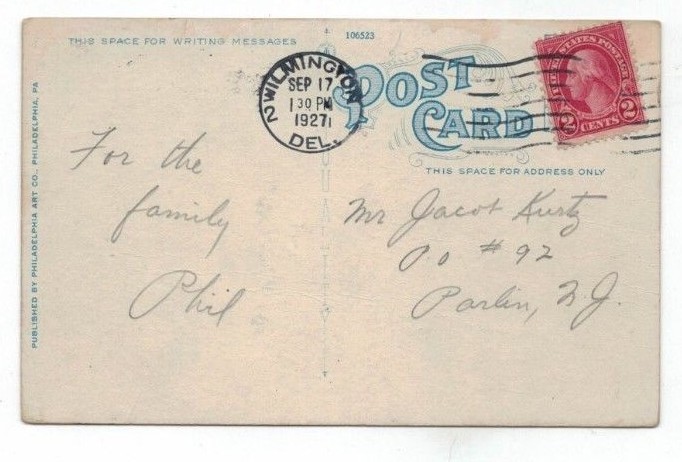 THIS SPACE FOR WRITING MESSAGES
106523
POST CARD
THIS SPACE FOR ADDRESS ONLY
WILMINGTON
SEP 17
1 30 PM
1927
2 DEL.
UNITED STATES POSTAGE
2 CENTS 2
For the
family
Phil
Mr Jacob Kurtz
PO # 92
Parlin, N.J.
PUBLISHED BY PHILADELPHIA ART CO., PHILADELPHIA, PA